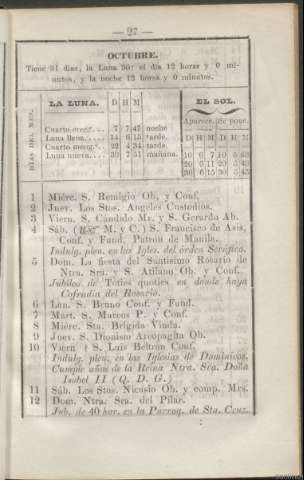 — 27 —
OCTUBRE.
Tiene 31 dias, la Luna 30: el dia 12 horas y 0 mi-
nutos, y la noche 12 horas y 0 minutos.
DIAS DEL MES.
LA LUNA. D H M
Cuarto 7 7 47 noche
Luna llena.... 14 6 15 tarde.
Cuarto meng.. 22 4 34 tarde.
Luna nueva... 30 7 51 mañana.
EL SOL.
Aparece. Se pone.
D H M H M
10 6 7 10 5 53
20 6 11 20 5
30 6 15 30 5 45
1 Miérc. S. Remigio Ob. y Conf.
2 Juev. Los Stos. Angeles Custodios.
3 Viern. S. Cándido Mr. y S. Gerardo Ab.
4 Sáb. M. y C.) S. Francisco de Asis,
Conf. y Fund. Patron de Manila.
Indulg. plen. en las Igles. del órden Seráfico.
5 Dom. La fiesta del Santísimo Rosario de
Ntra. Sra. y S. Atilano Ob. y Conf.
Jubileo de Tóties quoties en donde haya
Cofradia del Rosario.
6 Lún. S. Bruno Conf. y Fund.
7 Mart. S. Marcos P. y Conf.
8 Miérc. Sta. Brígida Viuda.
9 Juev. S. Dionisio Areopagita Ob.
10 Viern. S. Luis Beltran Conf.
Indulg. plen. en las Iglesias de Dominicos.
Cumple años de la Reina Ntra. Sra. Doña
Isabel II (Q. D. G.)
11 Sáb. Los Stos. Nicasio Ob. y comp. Mrs.
12 Dom. Ntra. Sra. del Pilar.
Jub. de 40 hor. en la Parroq. de Sta. Cruz.